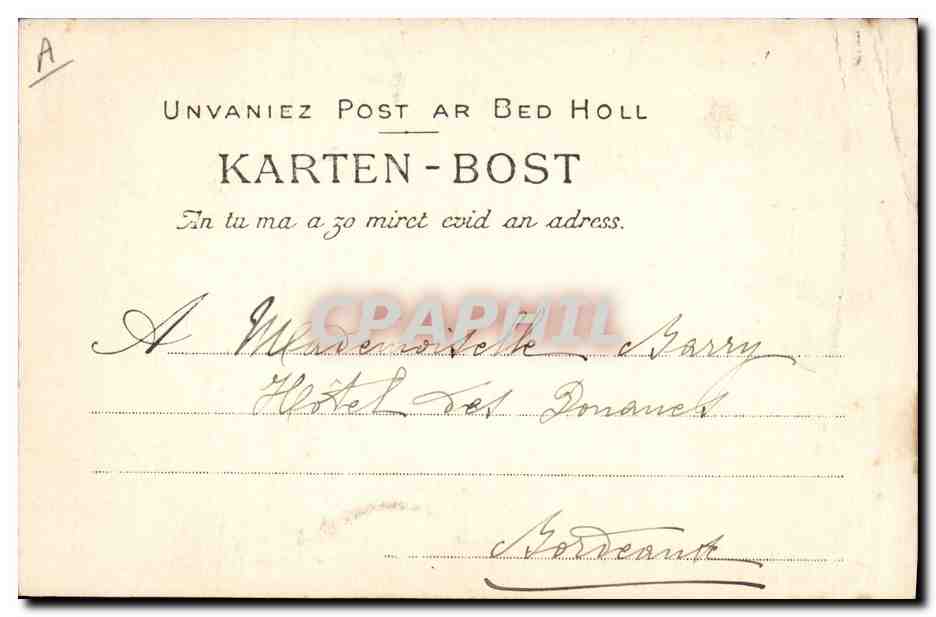 A
UNVANIEZ POST AR BED HOLL
KARTEN-BOST
An tu ma a zo miret evid an adress.
A Mademoiselle Barry
CPAPHIL
Hôtel des Douanes
Bordeaux